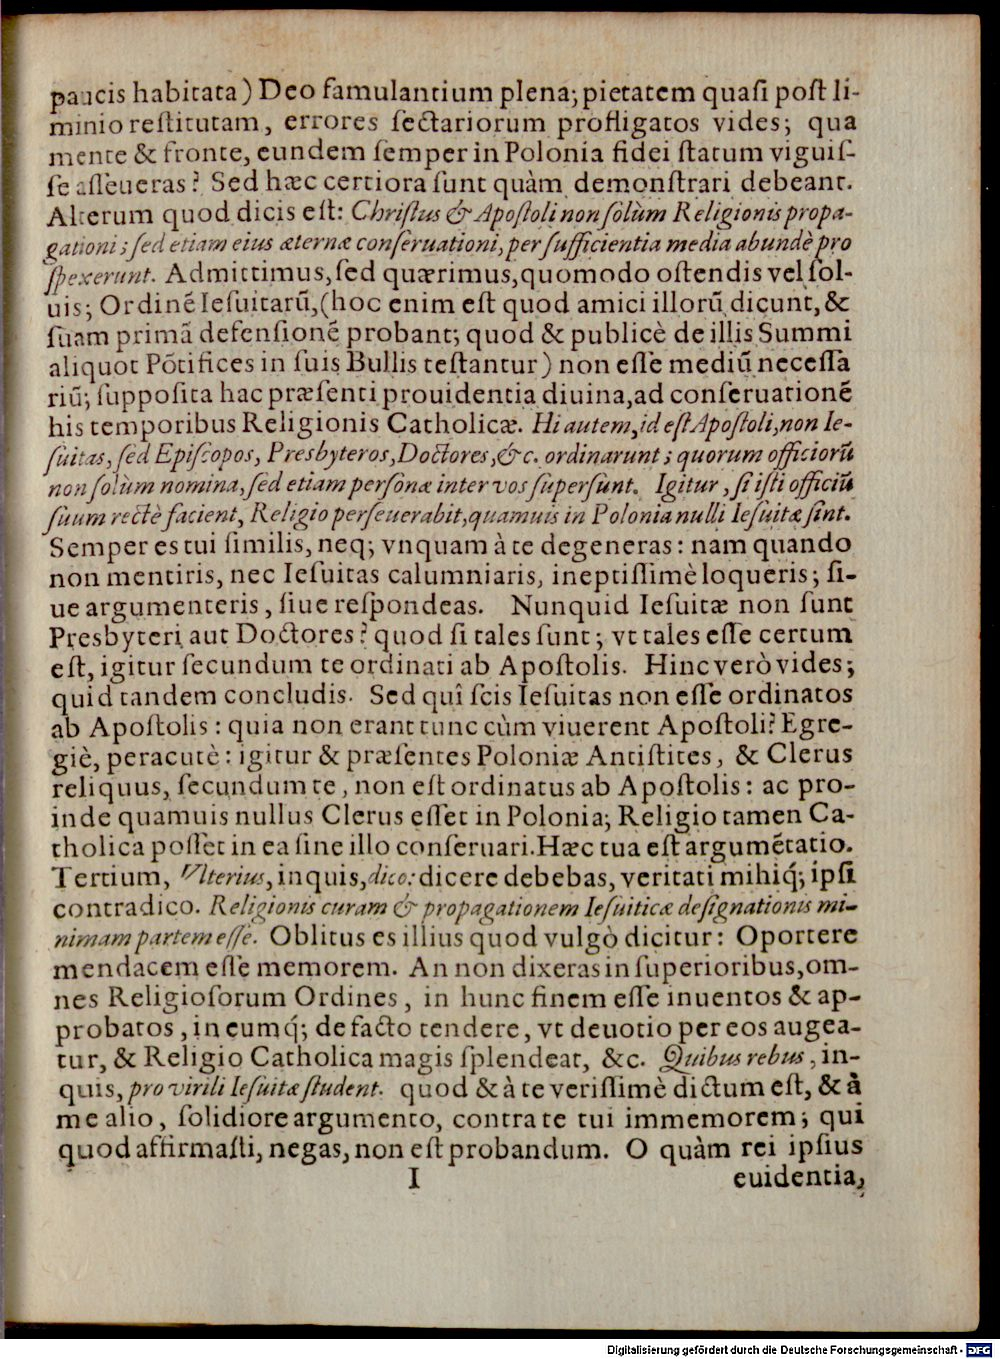 paucis habitata) Deo famulantium plena; pietatem quaſi poſt li-
minio reſtitutam, errores ſectariorum profligatos vides; qua
mente & fronte, eundem ſemper in Polonia fidei ſtatum viguiſ-
ſe aſſeueras? Sed hæc certiora ſunt quàm demonſtrari debeant.
Alterum quod dicis eſt: Chriſtus & Apoſtoli non ſolùm Religionis propa-
gationi; ſed etiam eius æternæ conſeruationi, per ſufficientia media abundè pro
ſpexerunt. Admittimus, ſed quærimus, quomodo oſtendis vel ſol-
uis; Ordinẽ Ieſuitarũ, (hoc enim eſt quod amici illorũ dicunt, &
ſuam primã defenſionẽ probant; quod & publicè de illis Summi
aliquot Põtifices in ſuis Bullis teſtantur) non eſſe mediũ neceſſa
riũ; ſuppoſita hac præſenti prouidentia diuina, ad conſeruationẽ
his temporibus Religionis Catholicæ. Hi autem, id eſt Apoſtoli, non Ie-
ſuitas, ſed Epiſcopos, Presbyteros, Doctores, &c. ordinarunt; quorum officiorũ
non ſolùm nomina, ſed etiam perſonæ inter vos ſuperſunt. Igitur, ſi iſti officiũ
ſuum rectè facient, Religio perſeuerabit, quamuis in Polonia nulli Ieſuitæ ſint.
Semper es tui ſimilis, neq; vnquam à te degeneras: nam quando
non mentiris, nec Ieſuitas calumniaris, ineptiſſimè loqueris; ſi-
ue argumenteris, ſiue reſpondeas. Nunquid Ieſuitæ non ſunt
Presbyteri aut Doctores? quod ſi tales ſunt; vt tales eſſe certum
eſt, igitur ſecundum te ordinati ab Apoſtolis. Hinc verò vides;
quid tandem concludis. Sed quî ſcis Ieſuitas non eſſe ordinatos
ab Apoſtolis: quia non erant tunc cùm viuerent Apoſtoli? Egre-
giè, peracutè: igitur & præſentes Poloniæ Antiſtites, & Clerus
reliquus, ſecundum te, non eſt ordinatus ab Apoſtolis: ac pro-
inde quamuis nullus Clerus eſſet in Polonia; Religio tamen Ca-
tholica poſſet in ea ſine illo conſeruari. Hæc tua eſt argumẽtatio.
Tertium, Vlterius, inquis, dico: dicere debebas, veritati mihiq́; ipſi
contradico. Religionis curam & propagationem Ieſuiticæ deſignationis mi-
nimam partem eſſe. Oblitus es illius quod vulgò dicitur: Oportere
mendacem eſſe memorem. An non dixeras in ſuperioribus, om-
nes Religioſorum Ordines, in hunc finem eſſe inuentos & ap-
probatos, in eumq́; de facto tendere, vt deuotio per eos augea-
tur, & Religio Catholica magis ſplendeat, &c. Quibus rebus, in-
quis, pro virili Ieſuitæ ſtudent. quod & à te veriſſimè dictum eſt, & à
me alio, ſolidiore argumento, contra te tui immemorem; qui
quod affirmaſti, negas, non eſt probandum. O quàm rei ipſius
I euidentia,
Digitalisierung gefördert durch die Deutsche Forschungsgemeinschaft - DFG